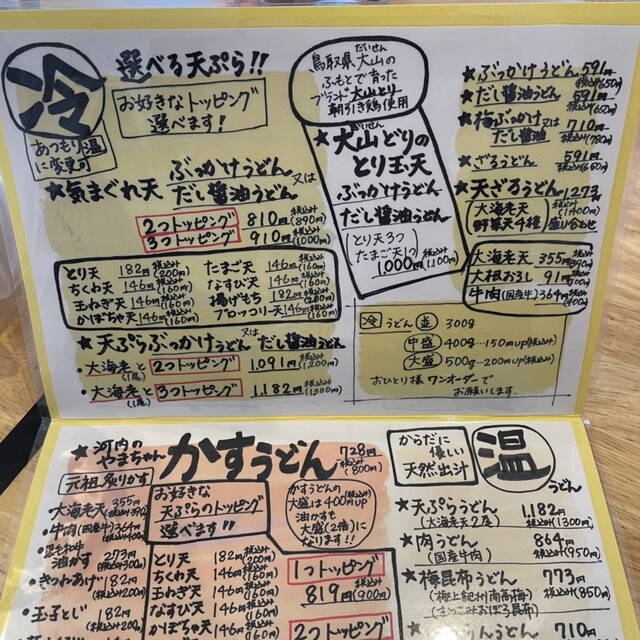 冷
あつもり温
に変更可
選べる天ぷら!!
お好きなトッピング
選べます!
★気まぐれ天 ぶっかけうどん 又は
だし醤油うどん
2つトッピング 810円 税込み(890円)
3つトッピング 910円 税込み(1000円)
とり天 182円 税込み(200円)
ちくわ天 146円 税込み(160円)
玉ねぎ天 146円 税込み(160円)
かぼちゃ天 146円 税込み(160円)
たまご天 146円 税込み(160円)
なすび天 146円 税込み(160円)
揚げもち 182円 税込み(200円)
ブロッコリー天 146円 税込み(160円)
★天ぷらぶっかけうどん 又は だし醤油うどん
・大海老と(1尾) 2つトッピング 1,091円 税込み(1200円)
・大海老と(1尾) 3つトッピング 1,182円 税込み(1300円)
鳥取県大山の
だいせん
ふもとで育った
ブランド大山どり
朝引き鶏使用
★大山どりの
だいせん
とり玉天
ぶっかけうどん
だし醤油うどん
(とり天3つ
たまご天1つ)
1000円 税込み(1,100円)
★ぶっかけうどん 591円 税込み(650円)
★だし醤油うどん 591円 税込み(650円)
★梅ぶっかけ又は
だし醤油 710円 税込み(780円)
★ざるうどん 591円 税込み(650円)
★天ざるうどん 1273円 税込み(1400円)
(大海老天
野菜天4種 盛り合わせ)
大海老天 355円 税込み(390円)
大根おろし 91円 税込み(100円)
牛肉(国産牛) 364円 税込み(400円)
冷 うどん 並 300g
中盛 400g…150円up(税込み)
大盛 500g…200円up(税込み)
おひとり様 ワンオーダーで
お願いします。
★河内の
やまちゃん
元祖 炙りかす
かすうどん 728円 税込み(800円)
・大海老天 355円(税込み390)
・牛肉(国産牛) 364円(税込み400)
・黒毛和牛
油かす 273円(税込み300)
・きつねあげ 182円(税込み200)
・玉子とじ 182円(税込み200)
お好きな
天ぷらのトッピング
選べます!!
かすうどんの
大盛は400円up
油かすも
大盛(2倍)に
なります!!
とり天 182円 税込み(200円)
ちくわ天 146円 税込み(160円)
玉ねぎ天 146円 税込み(160円)
なすび天 146円 税込み(160円)
かぼちゃ天 146円 税込み(160円)
1つトッピング
819円 税込み(900円)
2つトッピング
からだに
優しい
天然出汁
温
うどん
★天ぷらうどん 1,182円
(大海老天2尾) (税込み1300円)
★肉うどん 864円
(国産牛肉) (税込み950円)
★梅昆布うどん 773円
(梅上紀州南高梅) (税込み850円)
710円